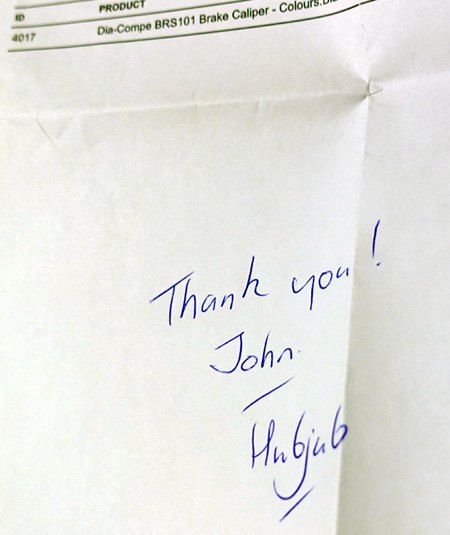 ID PRODUCT
4017 Dia-Compe BRS101 Brake Caliper - Colours:
Thank you!
John
Hubjub